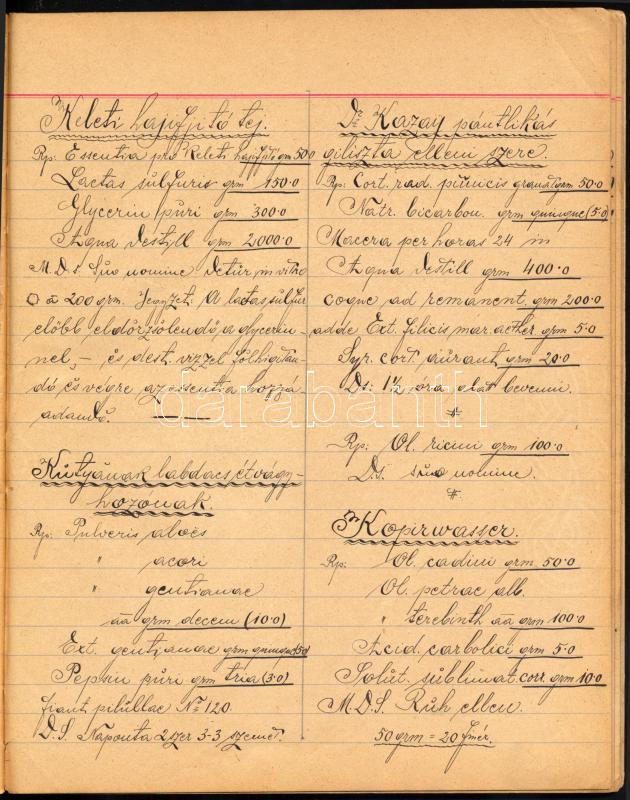 Keleti hajifjitó tej.
Rp: Essentia pro Keleti hajifjitó grm 50.0
Lactas sulfuris grm 150.0
Glycerin puri grm 300.0
Aqua destill grm 2000.0
M.D.s. Suo nomine detur in vitro
a 200 grm. Jegyzet: A lactas sulfur
előbb eldörzsölendő, a glycerin-
nel, – és dest. vizzel fölhigitan-
dó és végre az essentia hozzá-
adandó.
Kutyának labdacs étvágy-
hozónak.
Rp: Pulveris aloës
" acori
" gentianae
āā grm decem (10.0)
Ext. gentianae grm quinque (5.0)
Pepsin puri grm tria (3.0)
fiant pilullae No 120.
D.S. Naponta 2szer 3-3 szemet.
Dr Kazay pántlikás
giliszta elleni szere.
Rp: Cort. rad. punicis granat grm 50.0
Natr. bicarbon. grm quinque (5.0)
Macera per horas 24 in
Aqua destill grm 400.0
coque ad remanent. grm 200.0
adde Ext. filicis mar. aether. grm 5.0
Syr. cort. aurant. grm 20.0
Ds: 1½ óra alat bevenni.
#
Rp: Ol. ricini grm 100.0
D.s. suo nomine.
#
Kopirwasser.
Rp: Ol. cadini grm 50.0
Ol. petrae alb.
" terebinth āā grm 100.0
Acid. carbolici grm 5.0
Solut. sublimat corr. grm 10.0
M.D.S. Rüh ellen.
50 grm = 20 fillér.
darabanth